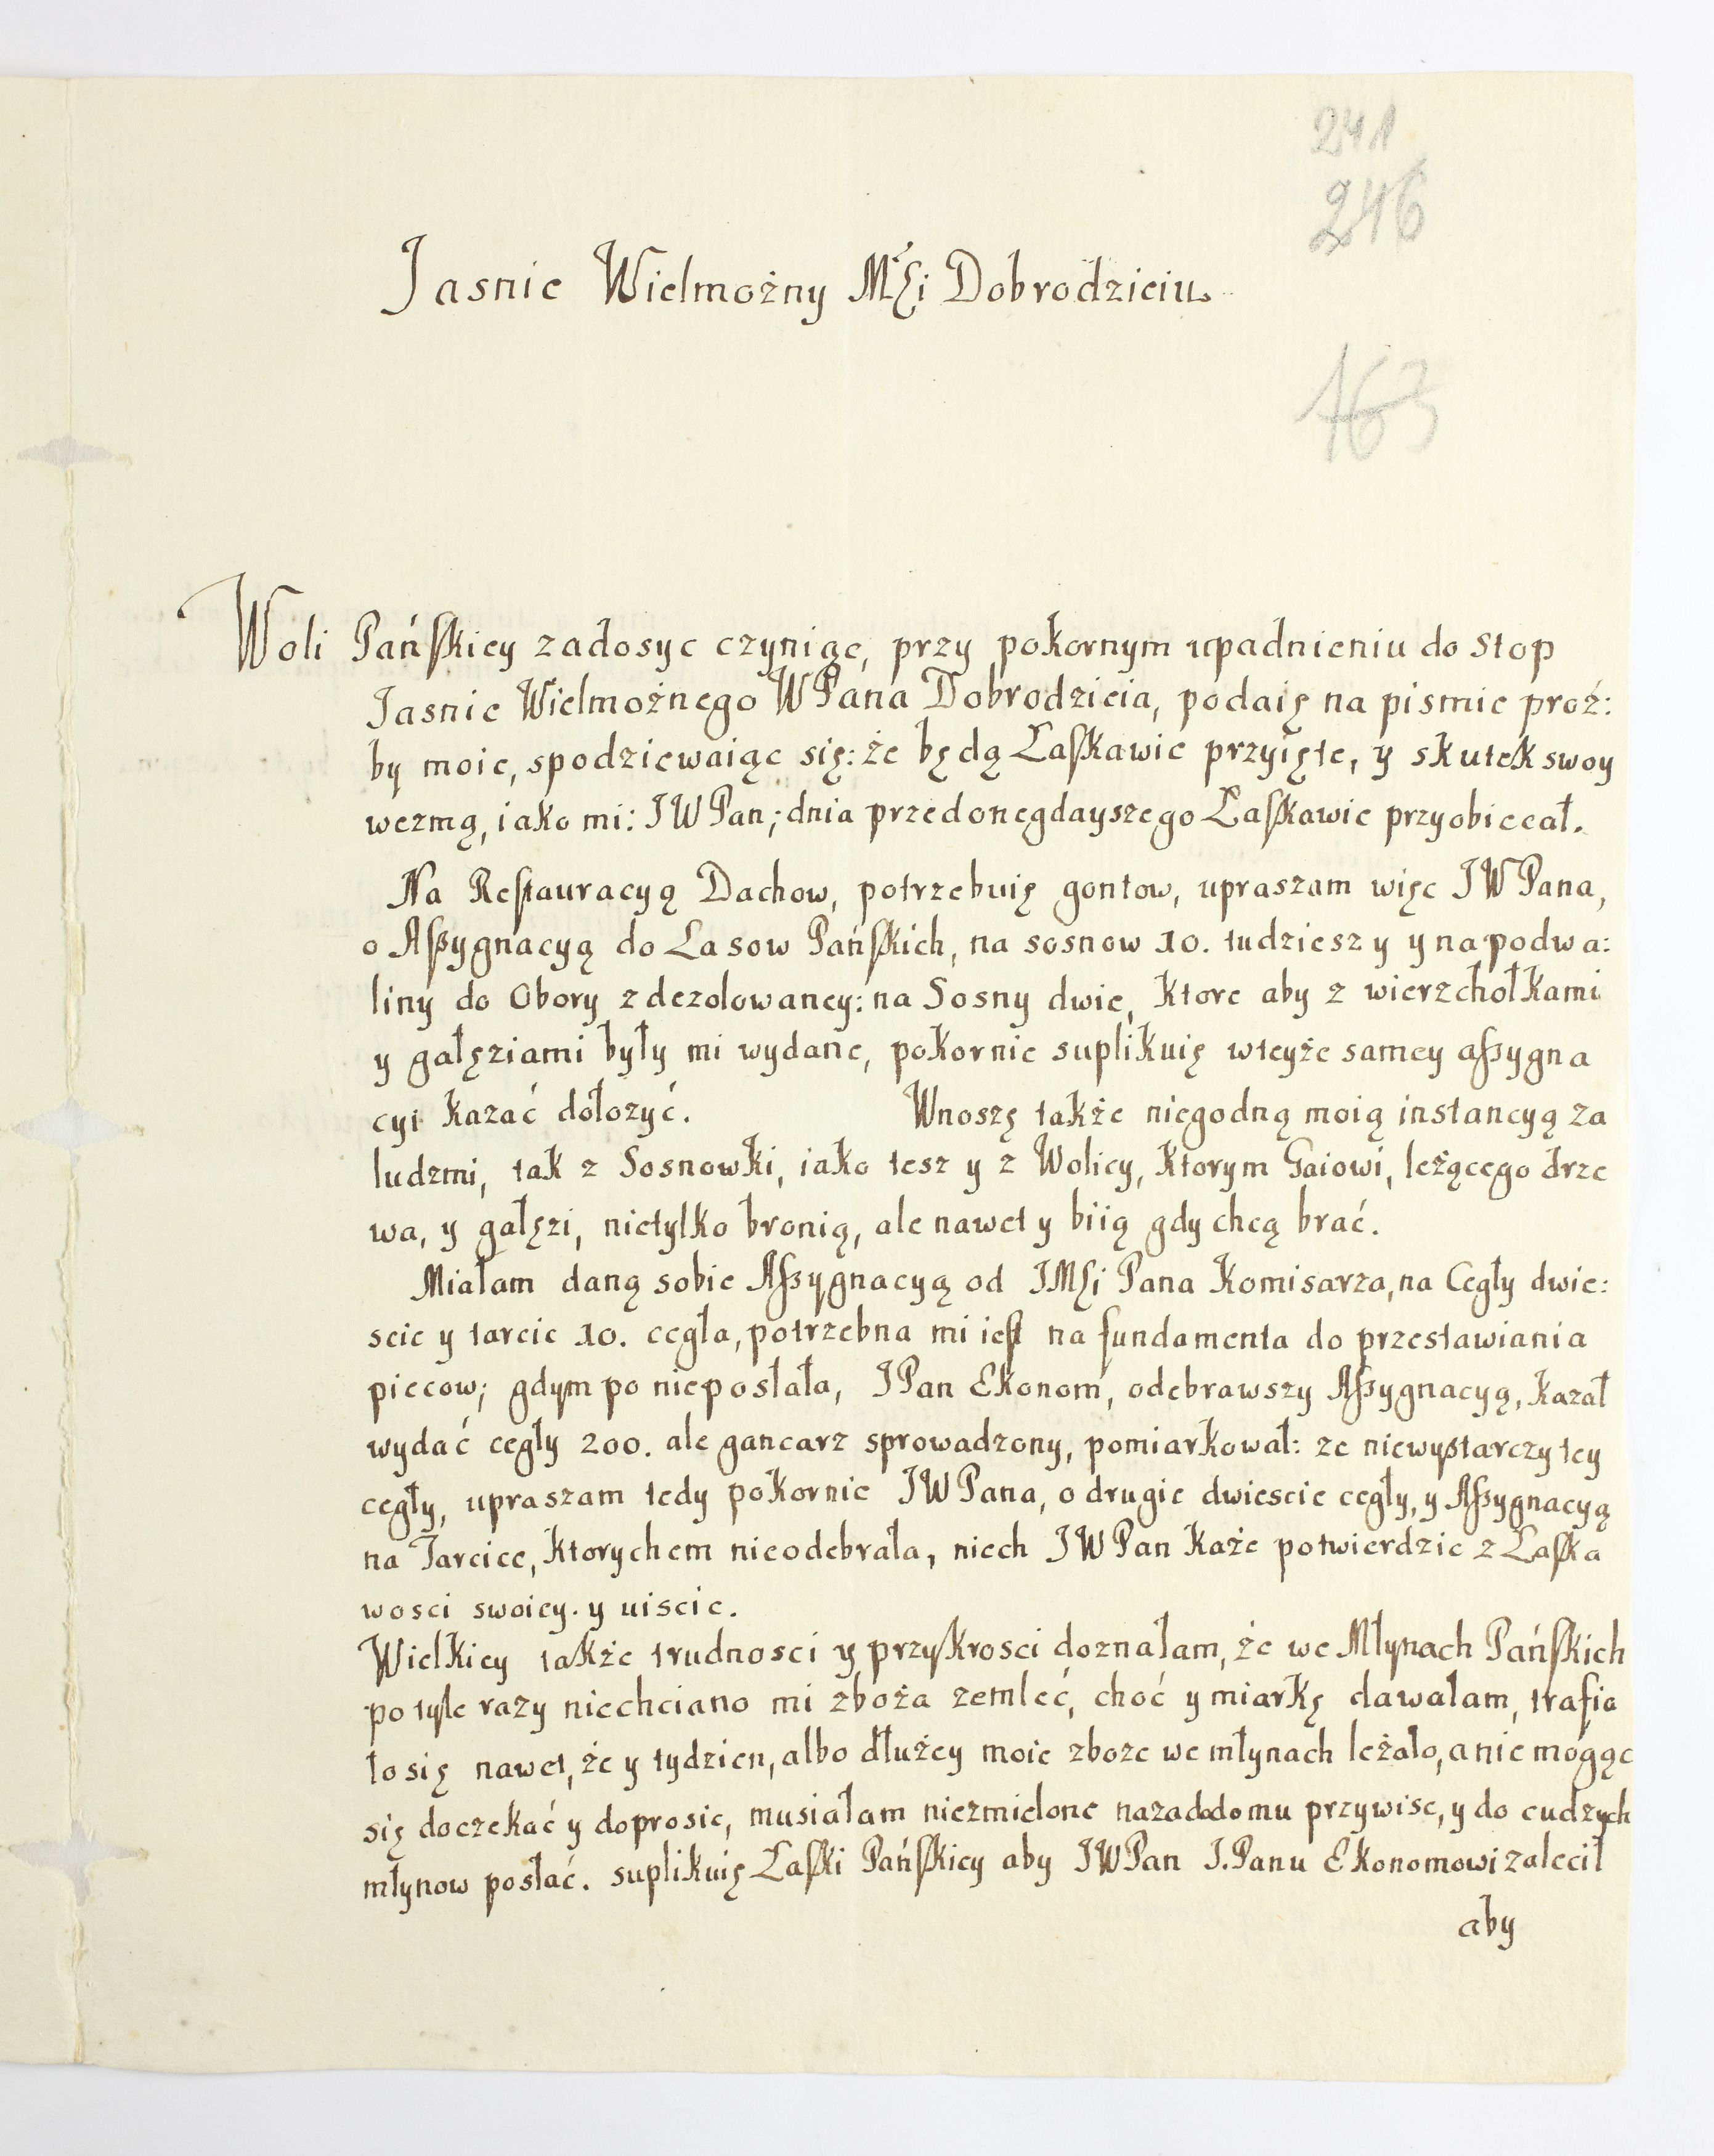 241
246
Jasnie Wielmożny Mſci Dobrodzieiu
163
Woli Pańſkiey zadosyc czyniąc, przy pokornym upadnieniu do stop
Jasnie Wielmożnego WPana Dobrodzieia, podaię na pismie proź:
by moie, spodziewaiąc się: że będą Łaſkawie przyięte, y skutek swoy
wezmą, iako mi: JWPan; dnia przedonegdayszego Łaſkawie przyobiecał.
Na Reſtauracyą Dachow, potrzebuię gontow, upraszam więc JWPana,
o Aſsygnacyą do Lasow Pańſkich, na sosnow 10. tudziesz y y na podwa:
liny do Obory zdezolowaney: na Sosny dwie, ktore aby z wierzchołkami
y gałęziami były mi wydane, pokornie suplikuię wteyże samey aſsygna
cyi kazać dołozyć. Wnoszę także niegodną moią instancyą za
ludzmi, tak z Sosnowki, iako tesz y z Wolicy, ktorym Gaiowi, leżącego drze
wa, y gałęzi, nietylko bronią, ale nawet y biią gdy chcą brać.
Miałam daną sobie Aſsygnacyą od JMſci Pana Komisarza, na Cegły dwie:
scie y tarcic 10. cegła, potrzebna mi ieſt na fundamenta do przestawiania
piecow; gdym po nie posłała, JPan Ekonom, odebrawszy Aſsygnacyą, kazał
wydać cegły 200. ale gancarz sprowadzony, pomiarkował: ze niewyſtarczy tey
cegły, upraszam tedy pokornie JWPana, o drugie dwiescie cegły, y Aſsygnacyą
na Tarcice, ktorychem nieodebrała, niech JWPan każe potwierdzic z Łaſka
wosci swoiey. y uiscic.
Wielkiey także trudnosci y przykrosci doznałam, że we Młynach Pańſkich
po tyle razy niechciano mi zboża zemleć, choć y miarkę dawałam, trafia
ło się nawet, że y tydzien, albo dłużey moie zboze we młynach leżało, a nie mogąc
się doczekać y doprosic, musiałam niezmielone nazad do domu przywisc, y do cudzych
młynow posłać. suplikuię Łaſki Pańſkiey aby JWPan J.Panu Ekonomowi zalecił
aby